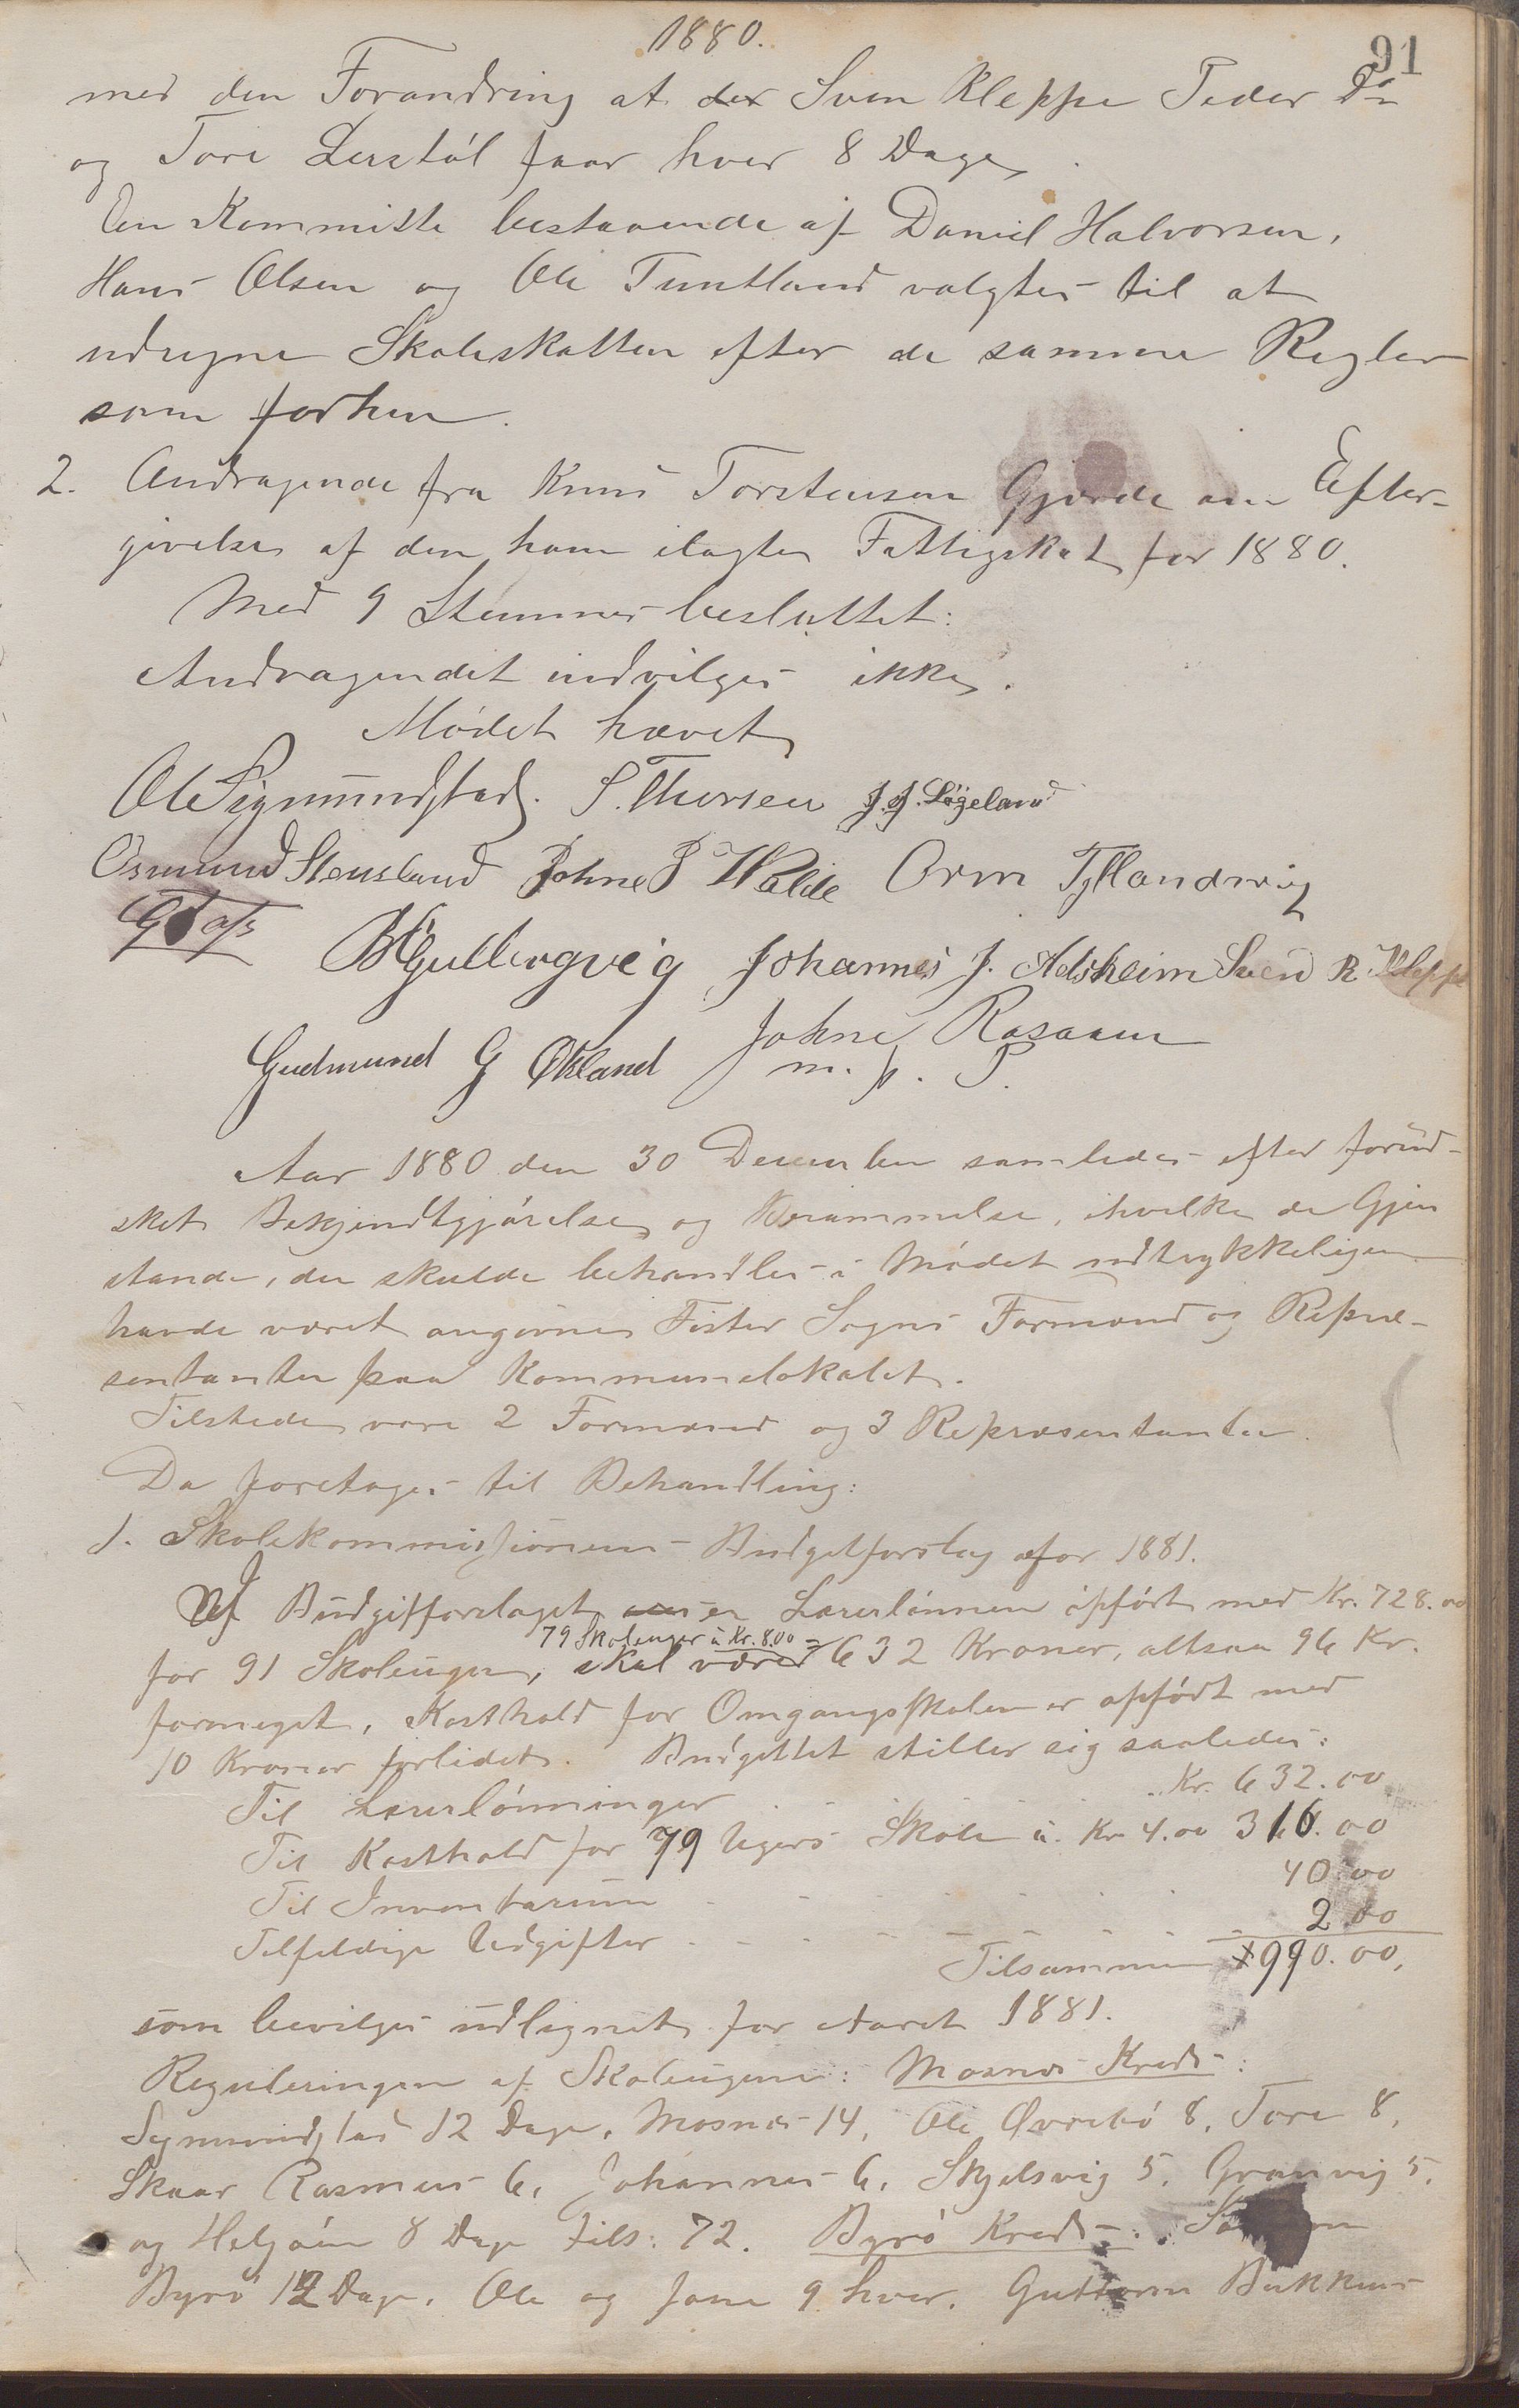 1880.
91
med den Forandring at der Sven Kleppe Peder Do
og Tore Lerstøl faar hver 8 Dage.
En Kommitte bestaaende af Daniel Halvorsen,
Hans Olsen og Ole Tuntland valgtes til at
udregne Skoleskatten efter de samme Regler
som forhen.
2. Andragende fra Knud Torstensen Gjerde om Efter-
givelse af den ham ilagte Fattigskat for 1880.
Med 9 Stemmer besluttet:
Andragendet indvilges ikke.
Mødet hævet
Ole Sigmundstad. S. Thorsen J. J. Løgeland
Osmund Stensland Johne J Walde Orm Tyllandsvig
B Gullingvig Johannes J. Adsheim Svend R Kleppe
Gudmund G Økland Johne Rosaaen
m. p. P.
Aar 1880 den 30 December samledes efter forud-
sket Bekjendtgjørelse og Berammelse, ihvilke de Gjen
stande, der skulde behandles i Mødet udtrykkeligen
havde været angivne Fister Sogns Formænd og Repræ-
sentanter paa Kommunelokalet.
Tilstede vare 2 Formænd og 3 Repræsentanter.
Da foretages til Behandling:
1. Skolekommissionens Budgetforslag for 1881.
Af Budgetforslaget er Lærerlønnen opført med Kr. 728.00
79 Skoleuger à Kr. 8.00 =
for 91 Skoleuger, skal være 632 Kroner, altsaa 96 Kr.
formeget, Kosthold for Omgangsskolen er opført med
10 Kroner forlidet. Budgettet stiller sig saaledes:
Til Lærerlønninger Kr. 632.00
Til Kosthold for 79 Ugers Skole à Kr 4.00 316.00
Til Inventarium 40.00
Tilfeldige Udgifter 2.00
Tilsammen 990.00,
som bevilges udlignet for Aaret 1881.
Reguleringen af Skoleugerne: Mosnes Kreds:
Sigmundstad 12 Dage, Mosnes 14, Ole Øvrebø 8, Tore 8,
Skaar Rasmus 6, Johannes 6, Skjelsvig 5, Granvig 5,
og Helgøen 8 Dage tils: 72. Byrø Kreds:
Byrø 12 Dage, Ole og Jone 9 hver. Guttorm Bakken